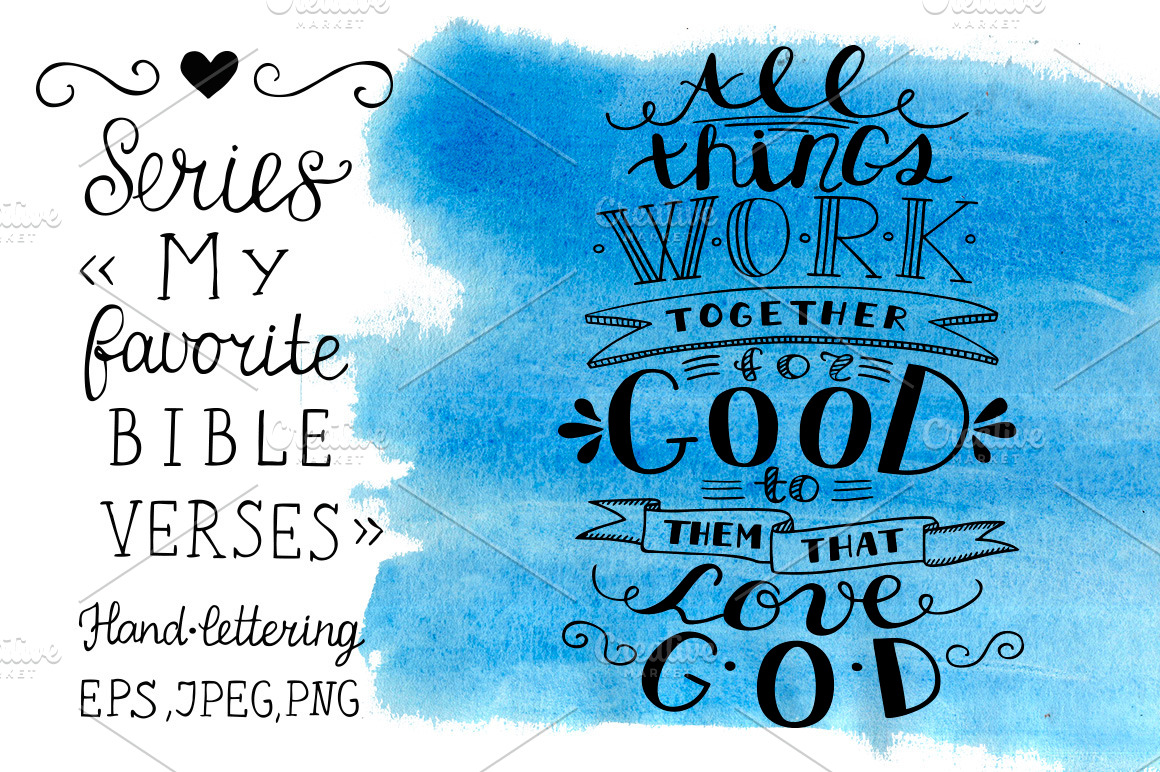 Series
« My
favorite
BIBLE
VERSES »
Hand·lettering
EPS, JPEG, PNG
All
things
W·O·R·K
TOGETHER
for
GOOD
to
THEM THAT
Love
G·O·D
Creative
MARKET